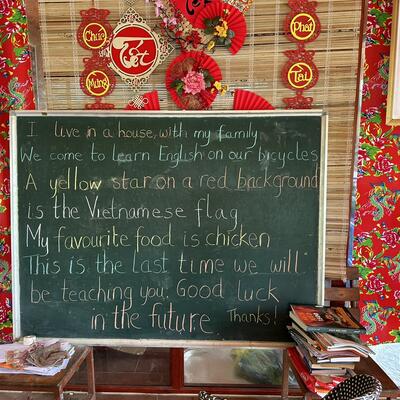 Chúc
Mừng
Tết
Phát
Tài
I live in a house, with my family
We come to learn English on our bicycles
A yellow star on a red background
is the Vietnamese flag
My favourite food is chicken
This is the last time we will
be teaching you. Good luck
in the future. Thanks!